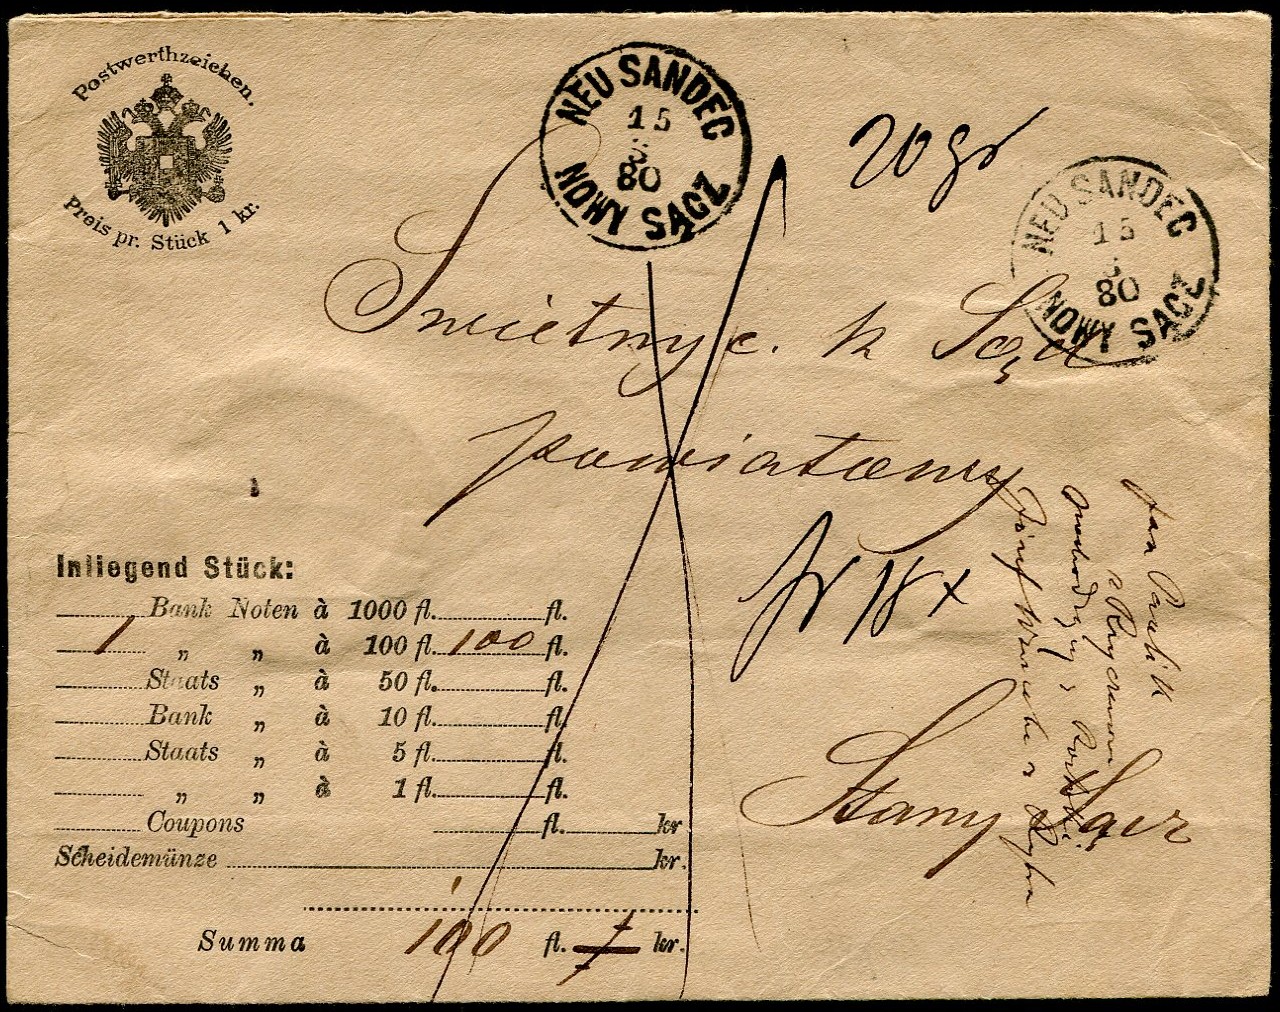 Postwerthzeichen.
Preis pr. Stück 1 kr.
NEU SANDEC
15
80
NOWY SĄCZ
20 gr
NEU SANDEC
15
80
NOWY SĄCZ
Swietny c. k Sąd
powiatowy
fr 18 x
Stary Sącz
Jan Pawlik
Inliegend Stück:
Bank Noten à 1000 fl. fl.
1 „ „ à 100 fl. 100 fl.
Staats „ à 50 fl. fl.
Bank „ à 10 fl. fl.
Staats „ à 5 fl. fl.
„ „ à 1 fl. fl.
Coupons fl. kr
Scheidemünze kr.
Summa 100 fl. kr.